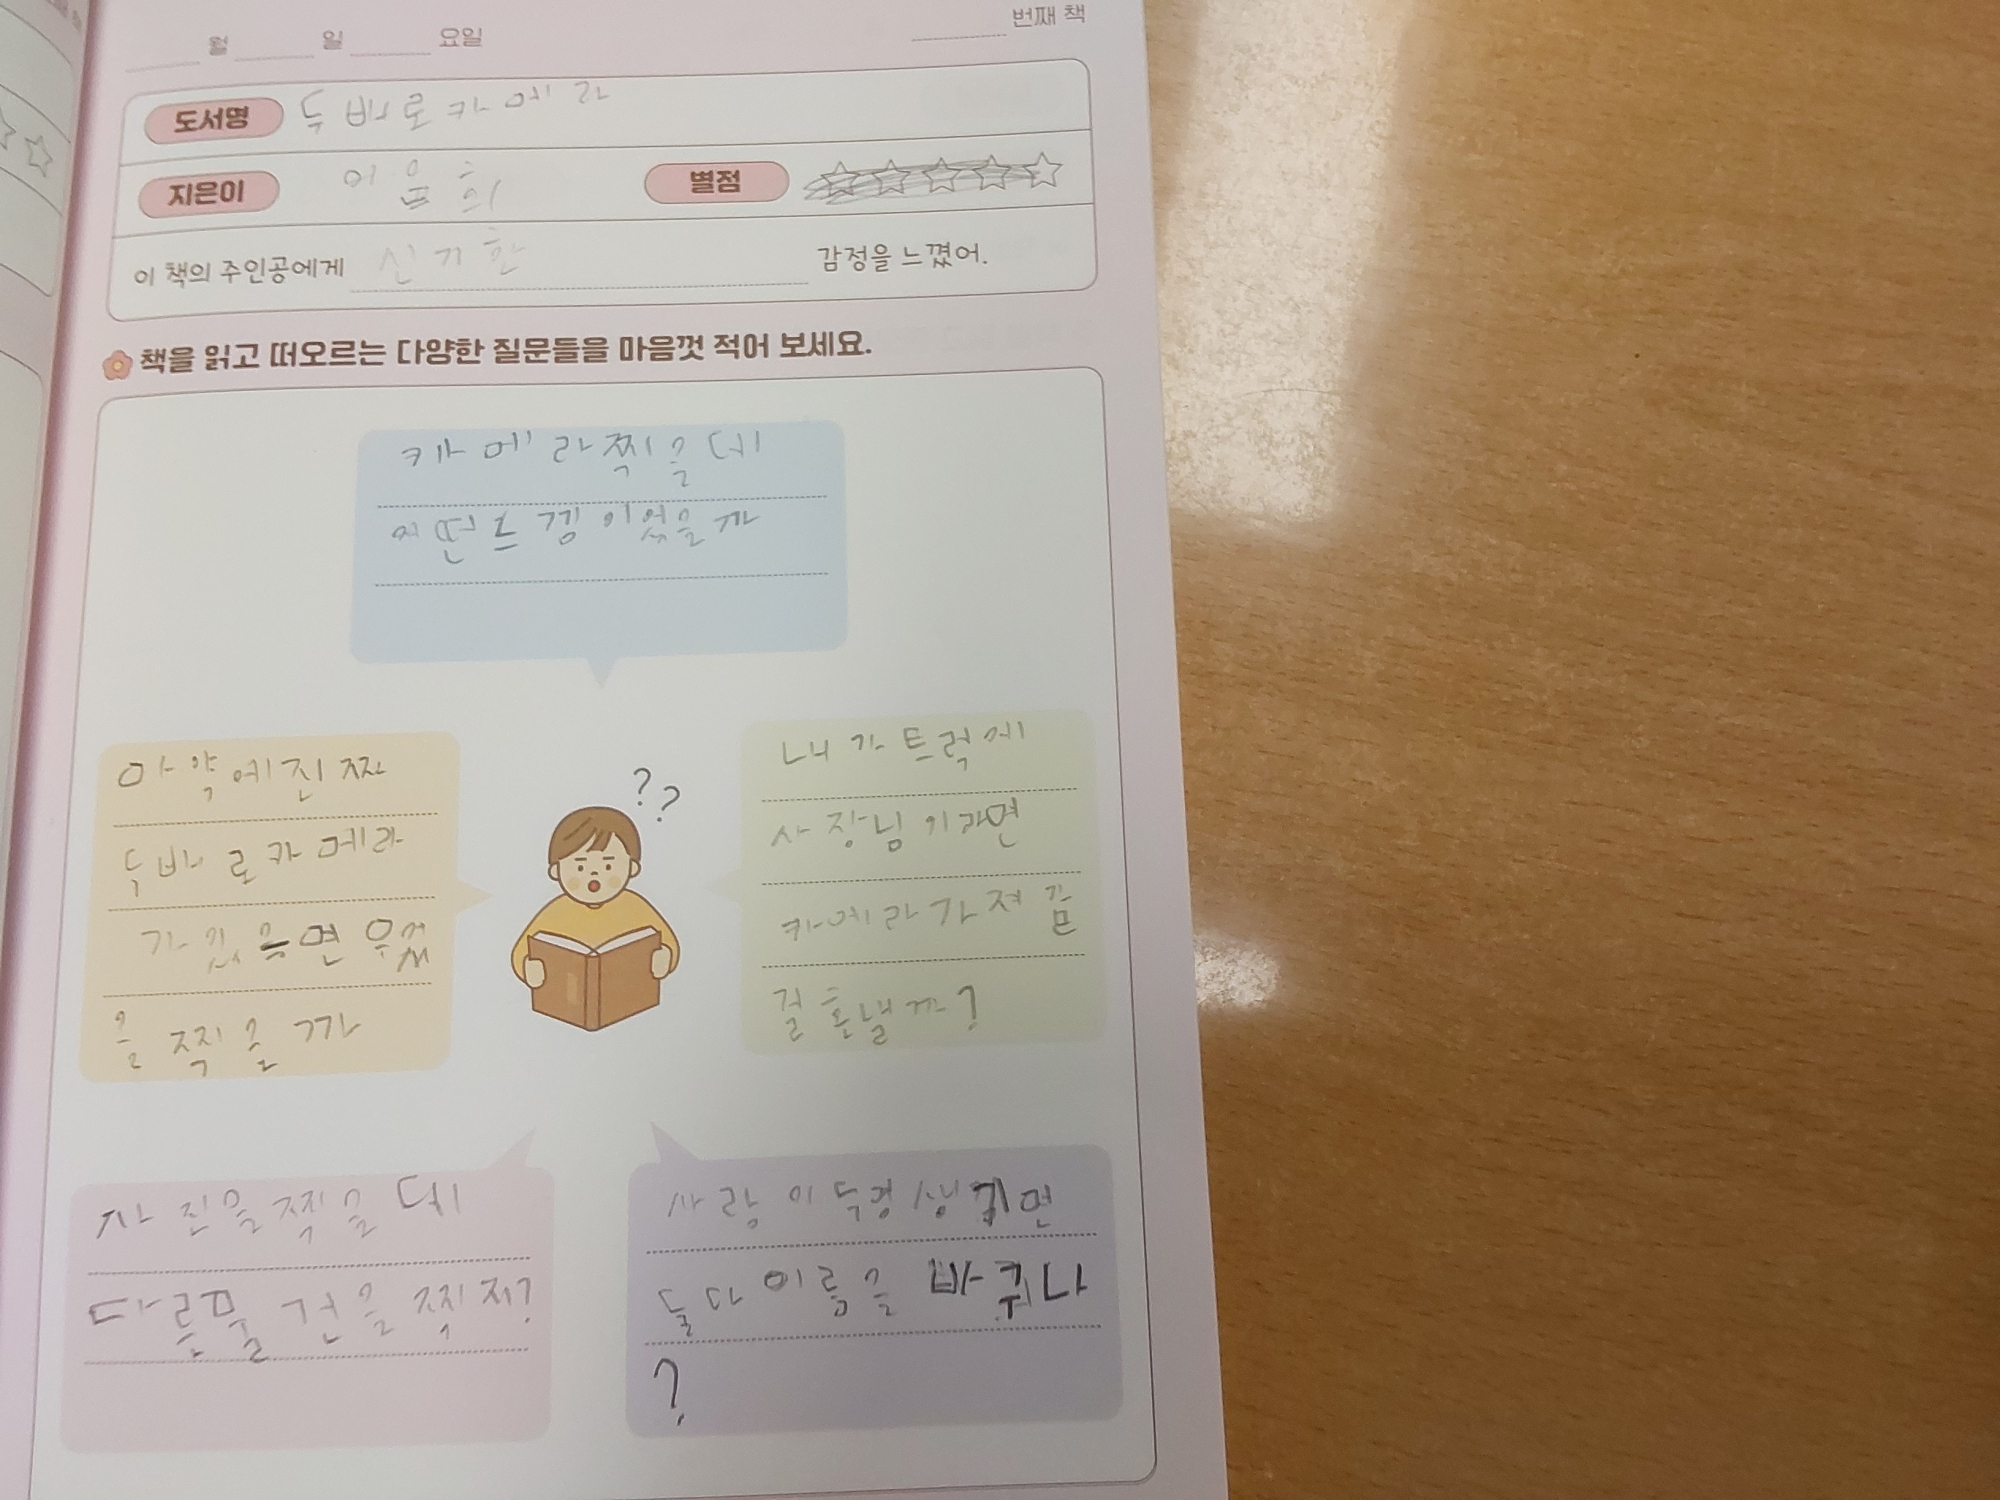 월 일 요일
번째 책
도서명 두배로카메라
지은이 이음희
별점
이 책의 주인공에게 신기한 감정을 느꼈어.
책을 읽고 떠오르는 다양한 질문들을 마음껏 적어 보세요.
카메라찍을 때
에떤 느낌이었을까
마약에진짜
두바로카메라
가있으면 무엇
을 찍을까
내가트럭에
사장님이라면
카메라가져감
걸혼낼까?
사진을찍을 때
다른물건을찍지?
사람이두명생기면
둘다이름을바꾸나
?